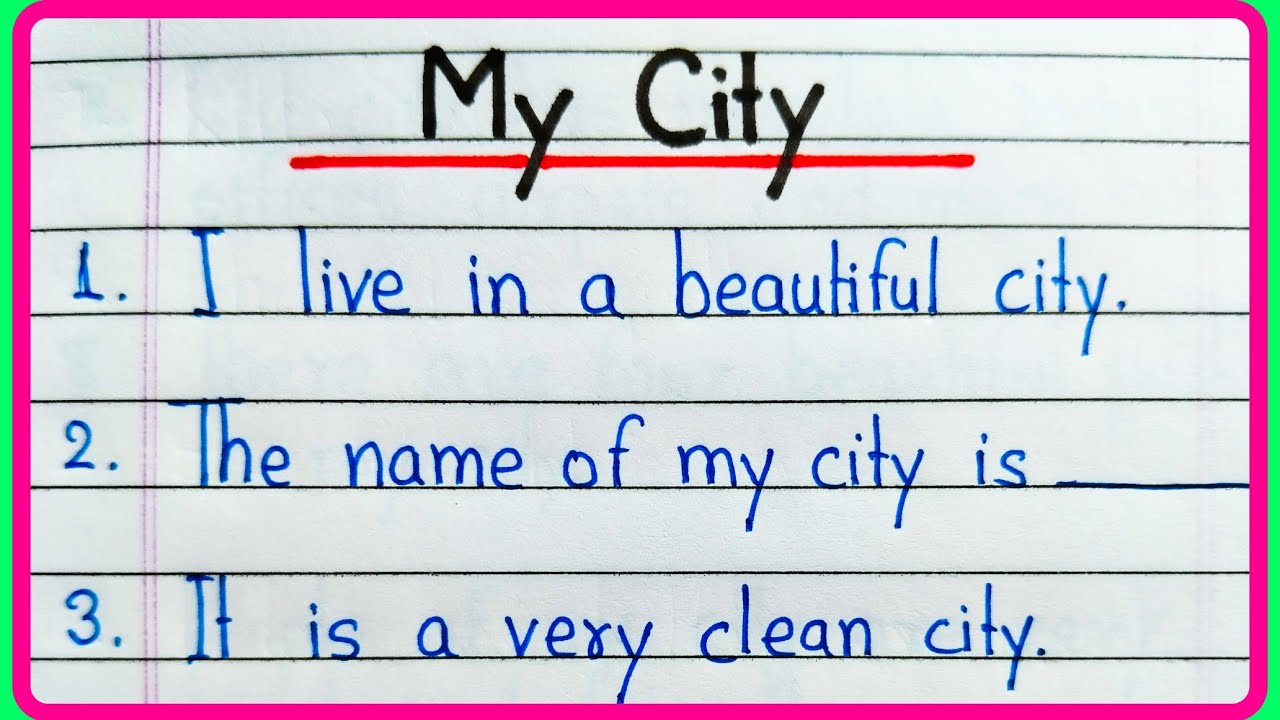 My City
1. I live in a beautiful city.
2. The name of my city is ______
3. It is a very clean city.